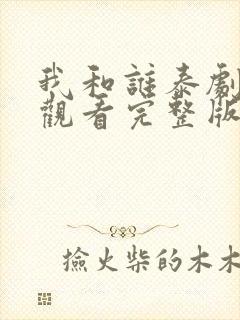 我和誰泰劇
觀看完整版
撿火柴的木木